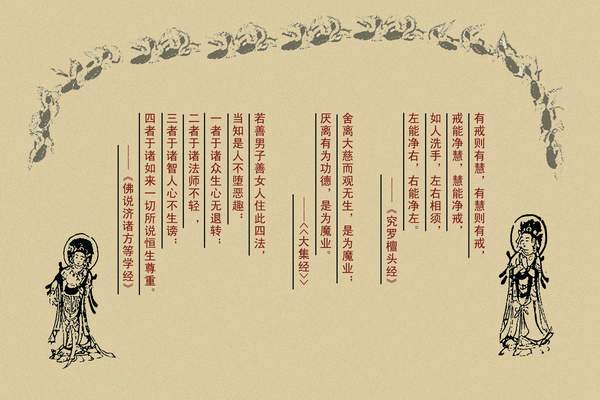 有戒则有慧，有慧则有戒，
戒能净慧，慧能净戒，
如人洗手，左右相须，
左能净右，右能净左。
——《究罗檀头经》
舍离大慈而观无生，是为魔业；
厌离有为功德，是为魔业。
——《大集经》
若善男子善女人住此四法，
当知是人不堕恶趣：
一者于诸众生心无退转；
二者于诸法师不轻，
三者于诸智人心不生谤；
四者于诸如来一切所说恒生尊重。
——《佛说济诸方等学经》